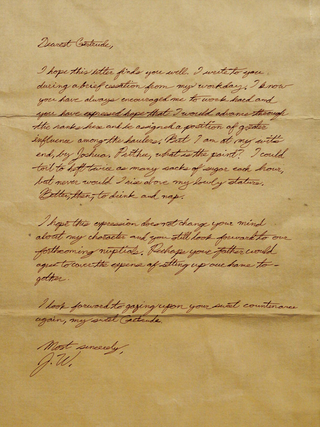 Dearest Gertrude,
I hope this letter finds you well. I write to you
during a brief cessation from my workday. I know
you have always encouraged me to work hard and
you have expressed hope that I would advance through
the ranks here and be assigned a position of greater
influence among the haulers. But I am at my wit's
end, by Joshua. Prithee, what is the point? I could
toil to loft twice as many sacks of sugar each hour,
but never would I rise above my lowly station.
Better, then, to drink and nap.
I hope this expression does not change your mind
about my character and you still look forward to our
forthcoming nuptials. Perhaps your father would
agree to cover the expense of setting up our home to-
gether.
I look forward to gazing upon your sweet countenance
again, my sweet Gertrude.
Most sincerely,
J.W.